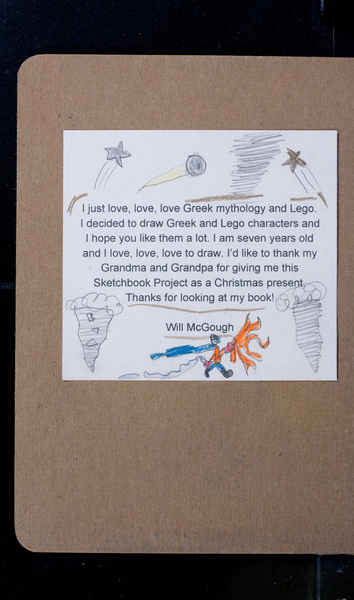 I just love, love, love Greek mythology and Lego.
I decided to draw Greek and Lego characters and
I hope you like them a lot. I am seven years old
and I love, love, love to draw. I'd like to thank my
Grandma and Grandpa for giving me this
Sketchbook Project as a Christmas present.
Thanks for looking at my book!
Will McGough